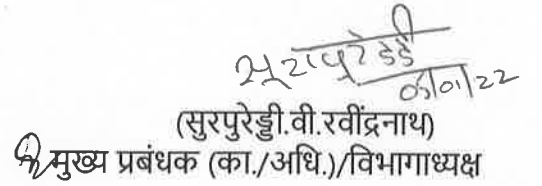 सुरापुरेड्डी
05/01/22
(सुरपुरेड्डी.वी.रवींद्रनाथ)
मुख्य प्रबंधक (का./अधि.)/विभागाध्यक्ष